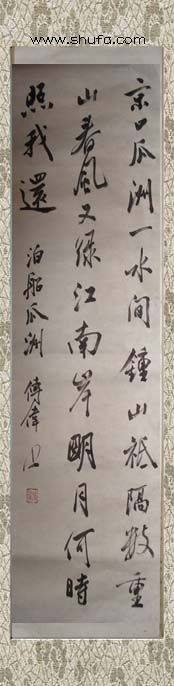 www.shufa.com
京口瓜洲一水间鍾山祗隔數重
山春風又绿江南岸明月何時
照我還
泊船瓜洲 傅偉